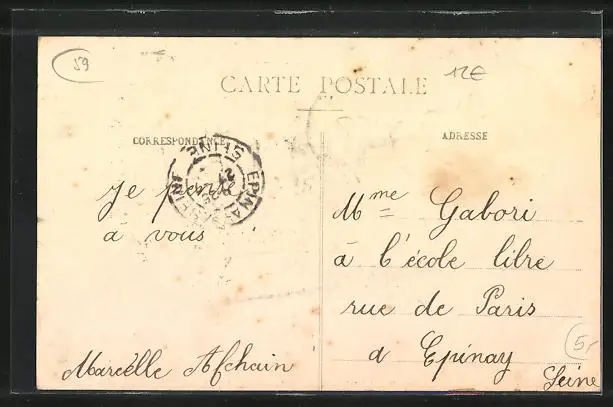 59
12€
CARTE POSTALE
CORRESPONDANCE
ADRESSE
EPINAY-S-SEINE
Je pense
à vous
Marcelle Afchain
Mme Gabori
à l'école libre
rue de Paris
à Epinay
Seine
5,-